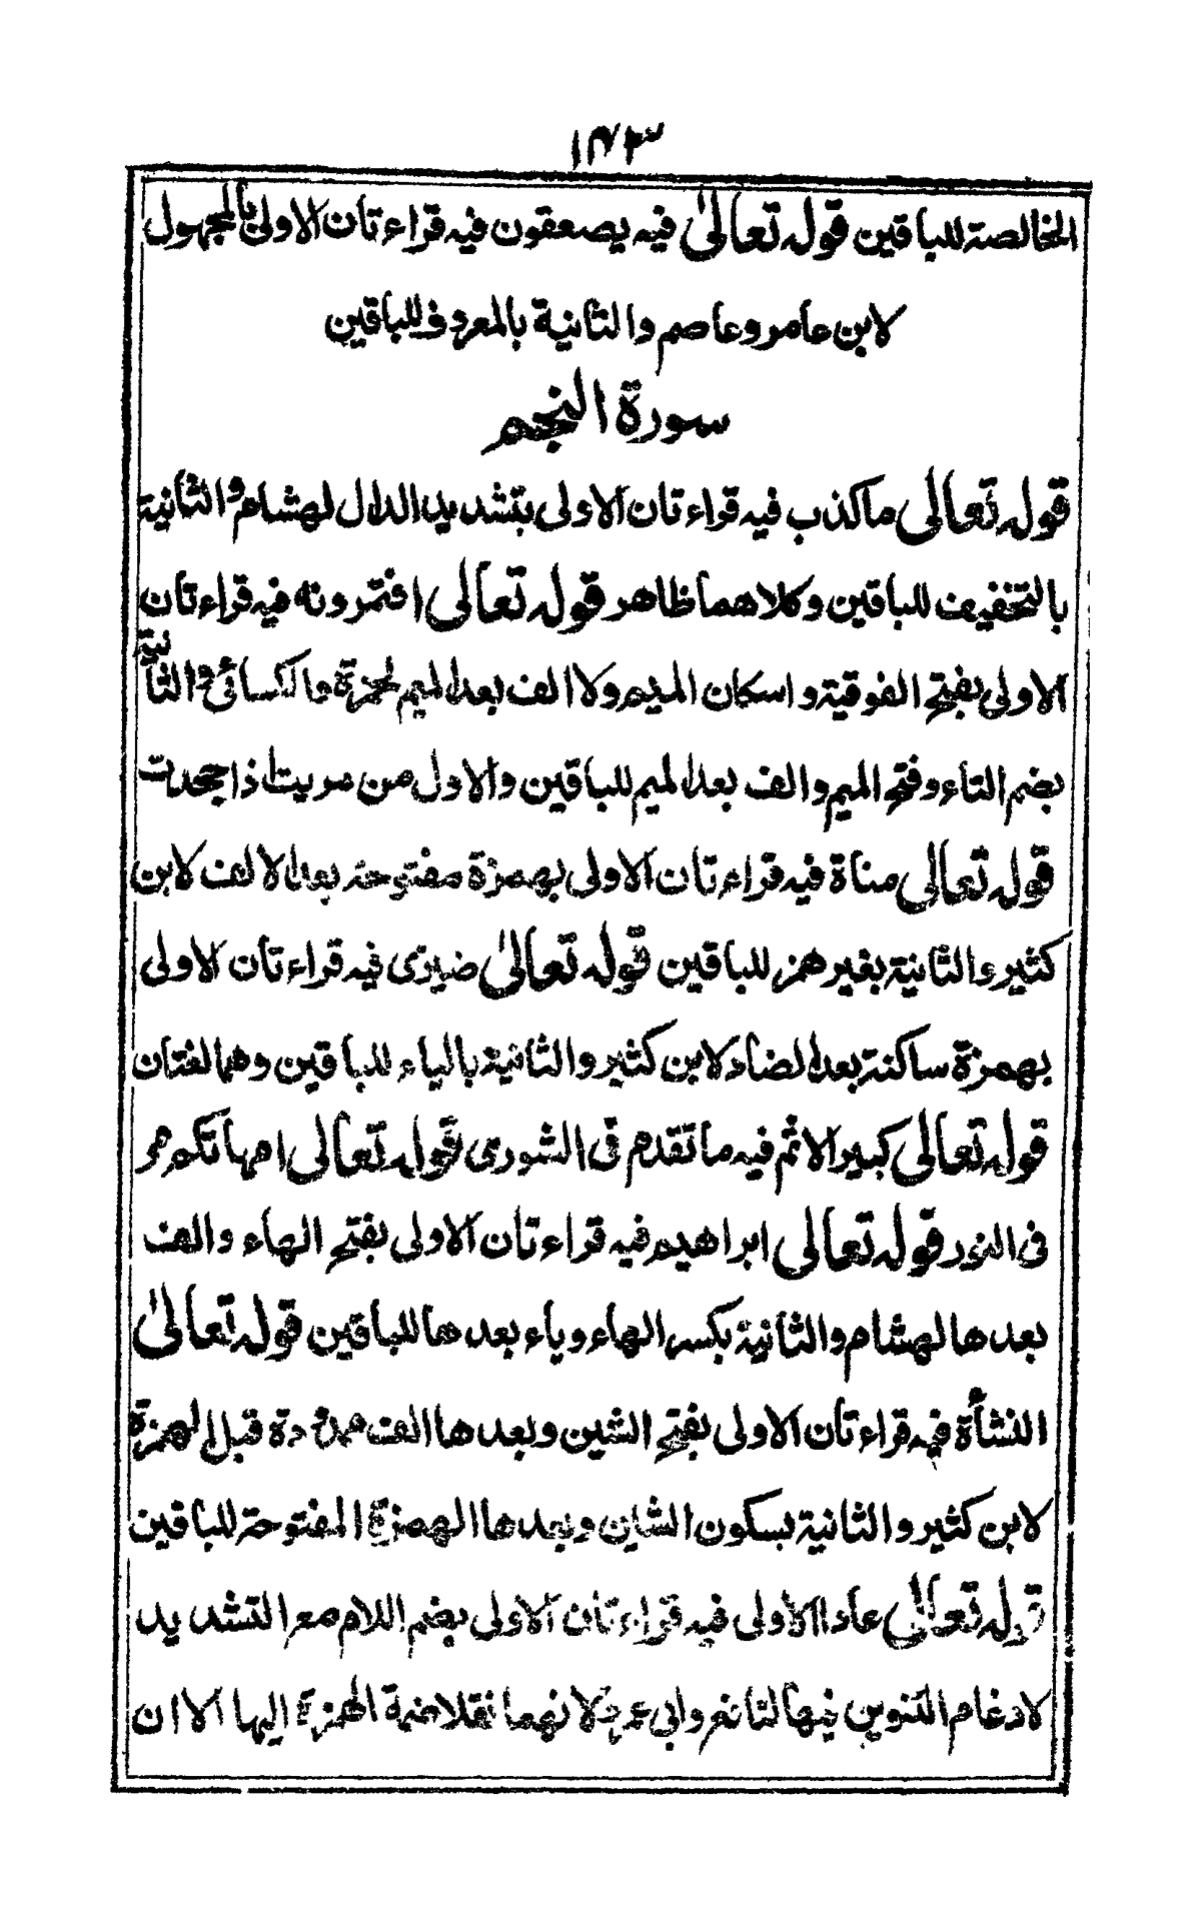 ١٤٣
الخالصة للباقين قوله تعالىٰ فيه يصعقون فيه قراءتان الاولى بالمجهول
لابن عامر وعاصم والثانية بالمعروف للباقين
سورة النجم
قوله تعالى ماكذب فيه قراءتان الاولى بتشديد الدال لهشام والثانية
بالتخفيف للباقين وكلاهما ظاهر قوله تعالى افتمرونه فيه قراءتان
الاولى بفتح الفوقية واسكان الميم ولا الف بعد الميم لحمزة والكسائى والثانية
بضم التاء وفتح الميم والف بعد الميم للباقين والاول من مريت اذا جحدت
قوله تعالى مناة فيه قراءتان الاولى بهمزة مفتوحة بعد الالف لابن
كثير والثانية بغير همز للباقين قوله تعالىٰ ضيزى فيه قراءتان الاولى
بهمزة ساكنة بعد الضاد لابن كثير والثانية بالياء للباقين وهما لغتان
قوله تعالى كبير الاثم فيه ما تقدم فى الشورى قوله تعالى امهاتكم مر
فى النور قوله تعالى ابراهيم فيه قراءتان الاولى بفتح الهاء والف
بعدها لهشام والثانية بكسر الهاء وياء بعدها للباقين قوله تعالىٰ
النشأة فيه قراءتان الاولى بفتح الشين وبعدها الف ممدودة قبل الهمزة
لابن كثير والثانية بسكون الشين وبعدها الهمزة المفتوحة للباقين
قوله تعالى عادا الاولى فيه قراءتان الاولى بضم اللام مع التشديد
لادغام التنوين فيها لنافع وابى عمرو لانهما نقلا ضمة الهمزة اليها الا ان